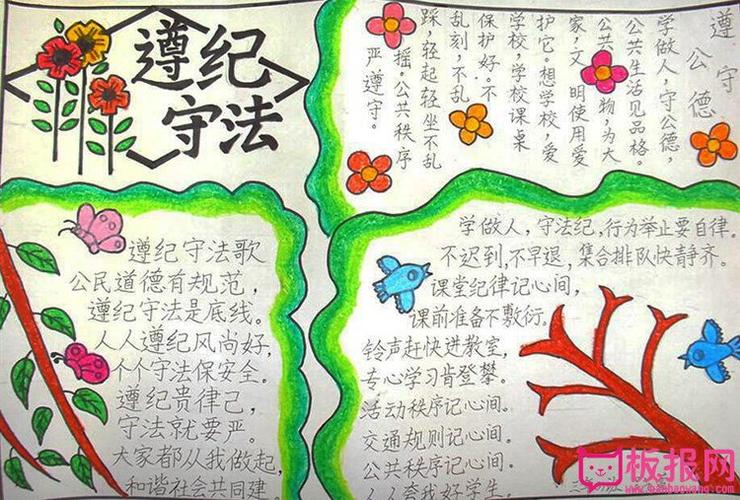 遵纪
守法
遵守公德
学做人,守公德,
公共生活见品格。
公共 物,为大
家,文明使用爱
护它。想学校,爱
学校,学校课桌
保护好。不
乱刻,不乱
踩,轻起轻坐不乱
摇。公共秩序
严遵守。
遵纪守法歌
公民道德有规范,
遵纪守法是底线。
人人遵纪风尚好,
个个守法保安全。
遵纪贵律己,
守法就要严。
大家都从我做起,
和谐社会共同建。
学做人,守法纪,行为举止要自律。
不迟到,不早退,集合排队快静齐。
课堂纪律记心间,
课前准备不敷衍。
铃声赶快进教室,
专心学习肯登攀。
活动秩序记心间。
交通规则记心间。
公共秩序记心间。
人人夸我好学生
板报网
www.banbaowang.com